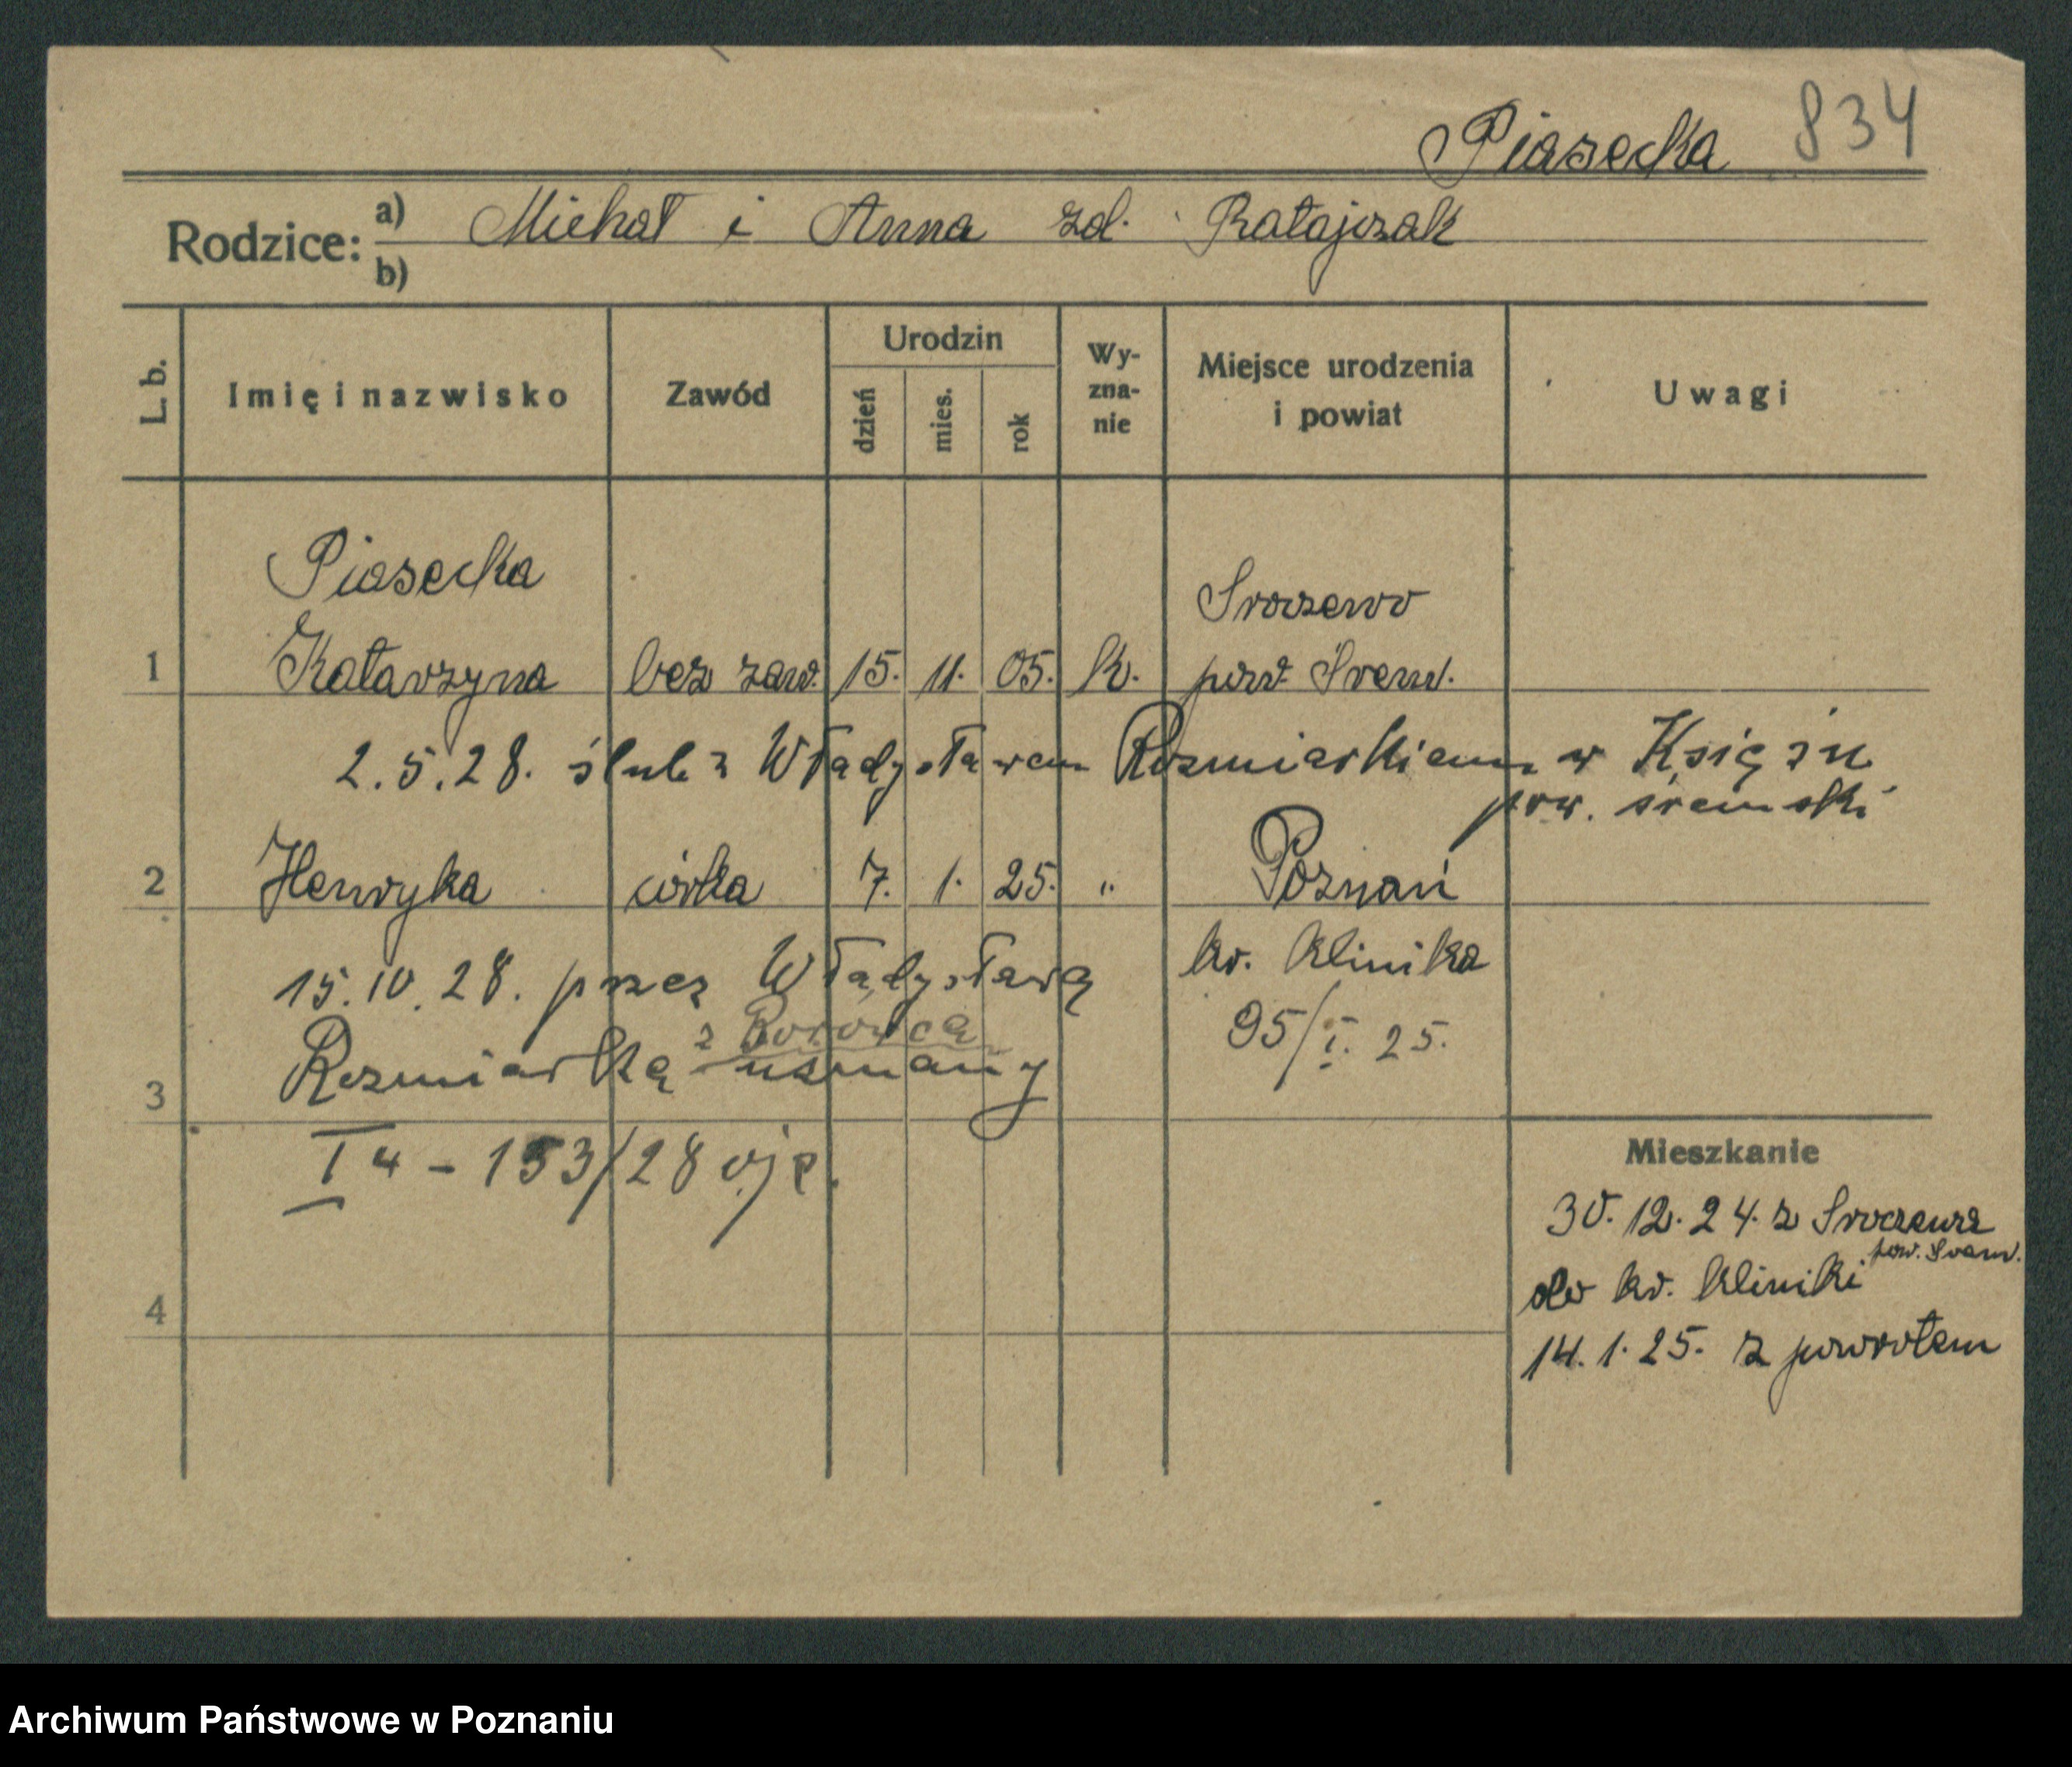 Piasecka 834
Rodzice: a) Michał i Anna zd. Ratajczak
b)
L. b. Imię i nazwisko Zawód Urodzin dzień mies. rok Wy-zna-nie Miejsce urodzenia i powiat Uwagi
Piasecka Sroczewo
1 Katarzyna bez zaw. 15. 11. 05. k. pow. Srem.
2.5.28. ślub z Władysławem Rozmiarkiem w Książu
pow. śremski
2 Henryka córka 7. 1. 25. " Poznań
15.10.28. przez Władysława kr. klinika
z Borowca 95/I. 25.
3 Rozmiarka uznany
I 4 - 153/28
Mieszkanie
30.12.24. z Sroczewa
pow. Srem.
do kr. kliniki
4
14.1.25. z powrotem
Archiwum Państwowe w Poznaniu